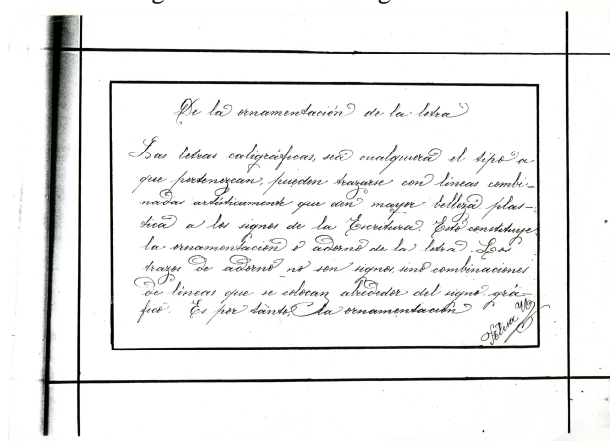 De la ornamentación de la letra
Las letras caligráficas, sea cualquiera el tipo a
que pertenezcan, pueden trazarse con líneas combi-
nadas artísticamente que den mayor belleza plás-
tica a los signos de la Escritura. Esto constituye
la ornamentación o adorno de la letra. Los
trazos de adorno no son signos sino combinaciones
de líneas que se colocan alrededor del signo grá-
fico. Es por tanto, la ornamentación
Felisa